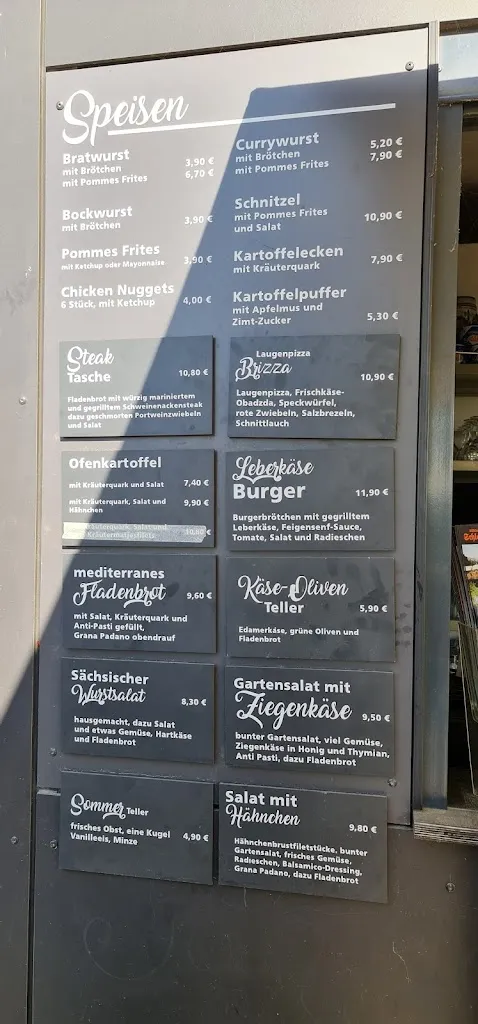 Speisen
Bratwurst
mit Brötchen 3,90 €
mit Pommes Frites 6,70 €
Bockwurst
mit Brötchen 3,90 €
Pommes Frites
mit Ketchup oder Mayonnaise 3,90 €
Chicken Nuggets
6 Stück, mit Ketchup 4,00 €
Currywurst 5,20 €
mit Brötchen 7,90 €
mit Pommes Frites
Schnitzel
mit Pommes Frites 10,90 €
und Salat
Kartoffelecken
mit Kräuterquark 7,90 €
Kartoffelpuffer
mit Apfelmus und
Zimt-Zucker 5,30 €
Steak
Tasche 10,80 €
Fladenbrot mit würzig mariniertem
und gegrilltem Schweinenackensteak
dazu geschmorten Portweinzwiebeln
und Salat
Laugenpizza
Brizza 10,90 €
Laugenpizza, Frischkäse-
Obadzda, Speckwürfel,
rote Zwiebeln, Salzbrezeln,
Schnittlauch
Ofenkartoffel
mit Kräuterquark und Salat 7,40 €
mit Kräuterquark, Salat und 9,90 €
Hähnchen
Kräuterquark, Salat und
Leberkäse
Burger 11,90 €
Burgerbrötchen mit gegrilltem
Leberkäse, Feigensenf-Sauce,
Tomate, Salat und Radieschen
mediterranes
Fladenbrot 9,60 €
mit Salat, Kräuterquark und
Anti-Pasti gefüllt,
Grana Padano obendrauf
Käse-Oliven
Teller 5,90 €
Edamerkäse, grüne Oliven und
Fladenbrot
Sächsischer
Wurstsalat 8,30 €
hausgemacht, dazu Salat
und etwas Gemüse, Hartkäse
und Fladenbrot
Gartensalat mit
Ziegenkäse 9,50 €
bunter Gartensalat, viel Gemüse,
Ziegenkäse in Honig und Thymian,
Anti Pasti, dazu Fladenbrot
Sommer Teller
frisches Obst, eine Kugel 4,90 €
Vanilleeis, Minze
Salat mit
Hähnchen 9,80 €
Hähnchenbrustfiletstücke, bunter
Gartensalat, frisches Gemüse,
Radieschen, Balsamico-Dressing,
Grana Padano, dazu Fladenbrot